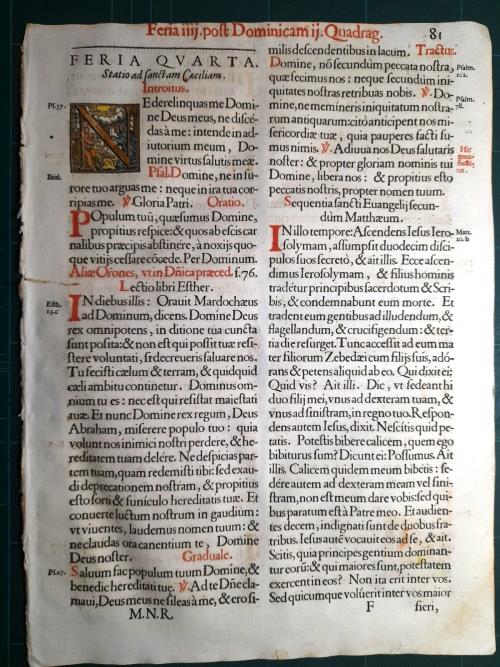 Feria iiij. post Dominicam ij. Quadrag.
81
FERIA QVARTA.
Statio ad sanctam Cæciliam.
Introitus.
Ps.37.
NE derelinquas me Domi-
ne Deus meus, ne discé-
das à me: intende in ad-
iutorium meum, Do-
mine virtus salutis meæ.
Ibid.
Psal. Domine, ne in fu-
rore tuo arguas me: neque in ira tua cor-
ripias me. ℣. Gloria Patri. Oratio.
POpulum tuū, quæsumus Domine,
propitius respice: & quos ab escis car
nalibus præcipis abstinère, à noxijs quo-
que vitijs cessare cōcede. Per Dominum.
Aliæ Orōnes, vt in Dñica præced. f.76.
Lectio libri Esther.
Esth.
13.c
IN diebus illis: Orauit Mardochæus
ad Dominum, dicens. Domine Deus
rex omnipotens, in ditione tua cuncta
sunt posita: & non est qui possit tuæ resi-
stere voluntati, si decreueris saluare nos.
Tu fecisti cælum & terram, & quidquid
cæli ambitu continetur. Dominus om-
nium tu es: nec est qui resistat maiestati
tuæ. Et nunc Domine rex regum, Deus
Abraham, miserere populo tuo: quia
volunt nos inimici nostri perdere, & he-
reditatem tuam delére. Ne despicias par-
tem tuam, quam redemisti tibi: sed exau-
di deprecationem nostram, & propitius
esto sorti & funículo hereditatis tuæ. Et
conuerte luctum nostrum in gaudium:
vt viuentes, laudemus nomen tuum: &
ne claudas ora canentium te, Domine
Deus noster. Graduale.
Ps.27.
Saluum fac populum tuum Domine, &
benedic hereditati tuæ. ℣. Ad te Dñe cla-
maui, Deus meus ne sileas à me, & ero si-
M.N.R.
milis descendentibus in lacum. Tractus.
Psalm.
102.
Domine, nō secundùm peccata nostra,
quæ fecimus nos: neque secundùm ini-
quitates nostras retribuas nobis. ℣. Do-
Psalm.
78.
mine, ne memíneris iniquitatum nostra-
rum antiquarum: citò anticipent nos mi-
sericordiæ tuæ, quia pauperes facti su-
mus nimis. ℣. Adiuua nos Deus salutaris
noster: & propter gloriam nominis tui
Domine, libera nos: & propitius esto
peccatis nostris, propter nomen tuum.
Sequentia sancti Euangelij secun-
dùm Matthæum.
Matt.
20.b
IN illo tempore: Ascendens Iesus Iero-
solymam, assumpsit duodecim disci-
pulos suos secretò, & ait illis. Ecce ascen-
dimus Ierosolymam, & filius hominis
tradétur principibus sacerdotum & Scri-
bis, & condemnabunt eum morte. Et
tradent eum gentibus ad illudendum, &
flagellandum, & crucifigendum: & ter-
tia die resurget. Tunc accessit ad eum ma
ter filiorum Zebedæi cum filijs suis, adó-
rans & petens aliquid ab eo. Qui dixit ei;
Quid vis? Ait illi. Dic, vt sedeant hi
duo filij mei, vnus ad dexteram tuam, &
vnus ad sinistram, in regno tuo. Respon-
dens autem Iesus, dixit. Nescitis quid pe-
tatis. Potestis bibere calicem, quem ego
bibiturus sum? Dicunt ei: Possumus. Ait
illis. Calicem quidem meum bibétis: se-
dére autem ad dexteram meam vel sini-
stram, non est meum dare vobis: sed qui-
bus paratum est à Patre meo. Et audien-
tes decem, indignati sunt de duobus fra-
tribus. Iesus autē vocauit eos ad se, & ait.
Scitis, quia principes gentium dominan-
tur eorū: & qui maiores sunt, potestatem
exercent in eos? Non ita erit inter vos.
Sed quicumque volúerit inter vos maior
F
fieri,